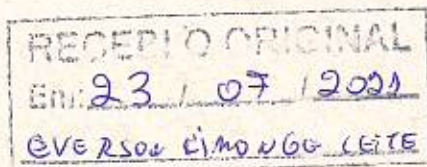 RECEBI O ORIGINAL
Em: 23 / 07 / 2021
EVERSON LEITE